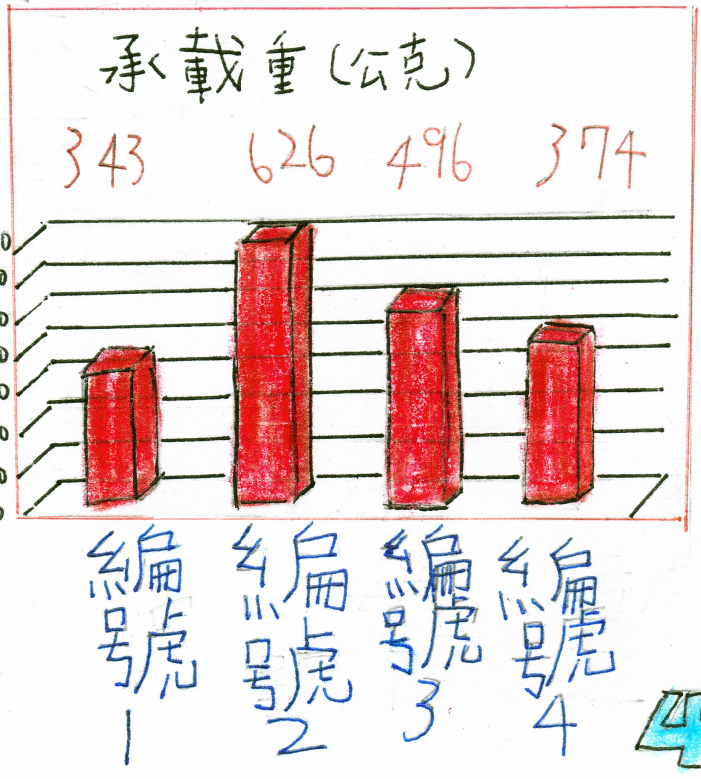 承載重(公克)
343 626 496 374
0
0
0
0
0
0
0
0
編號1 編號2 編號3 編號4
4